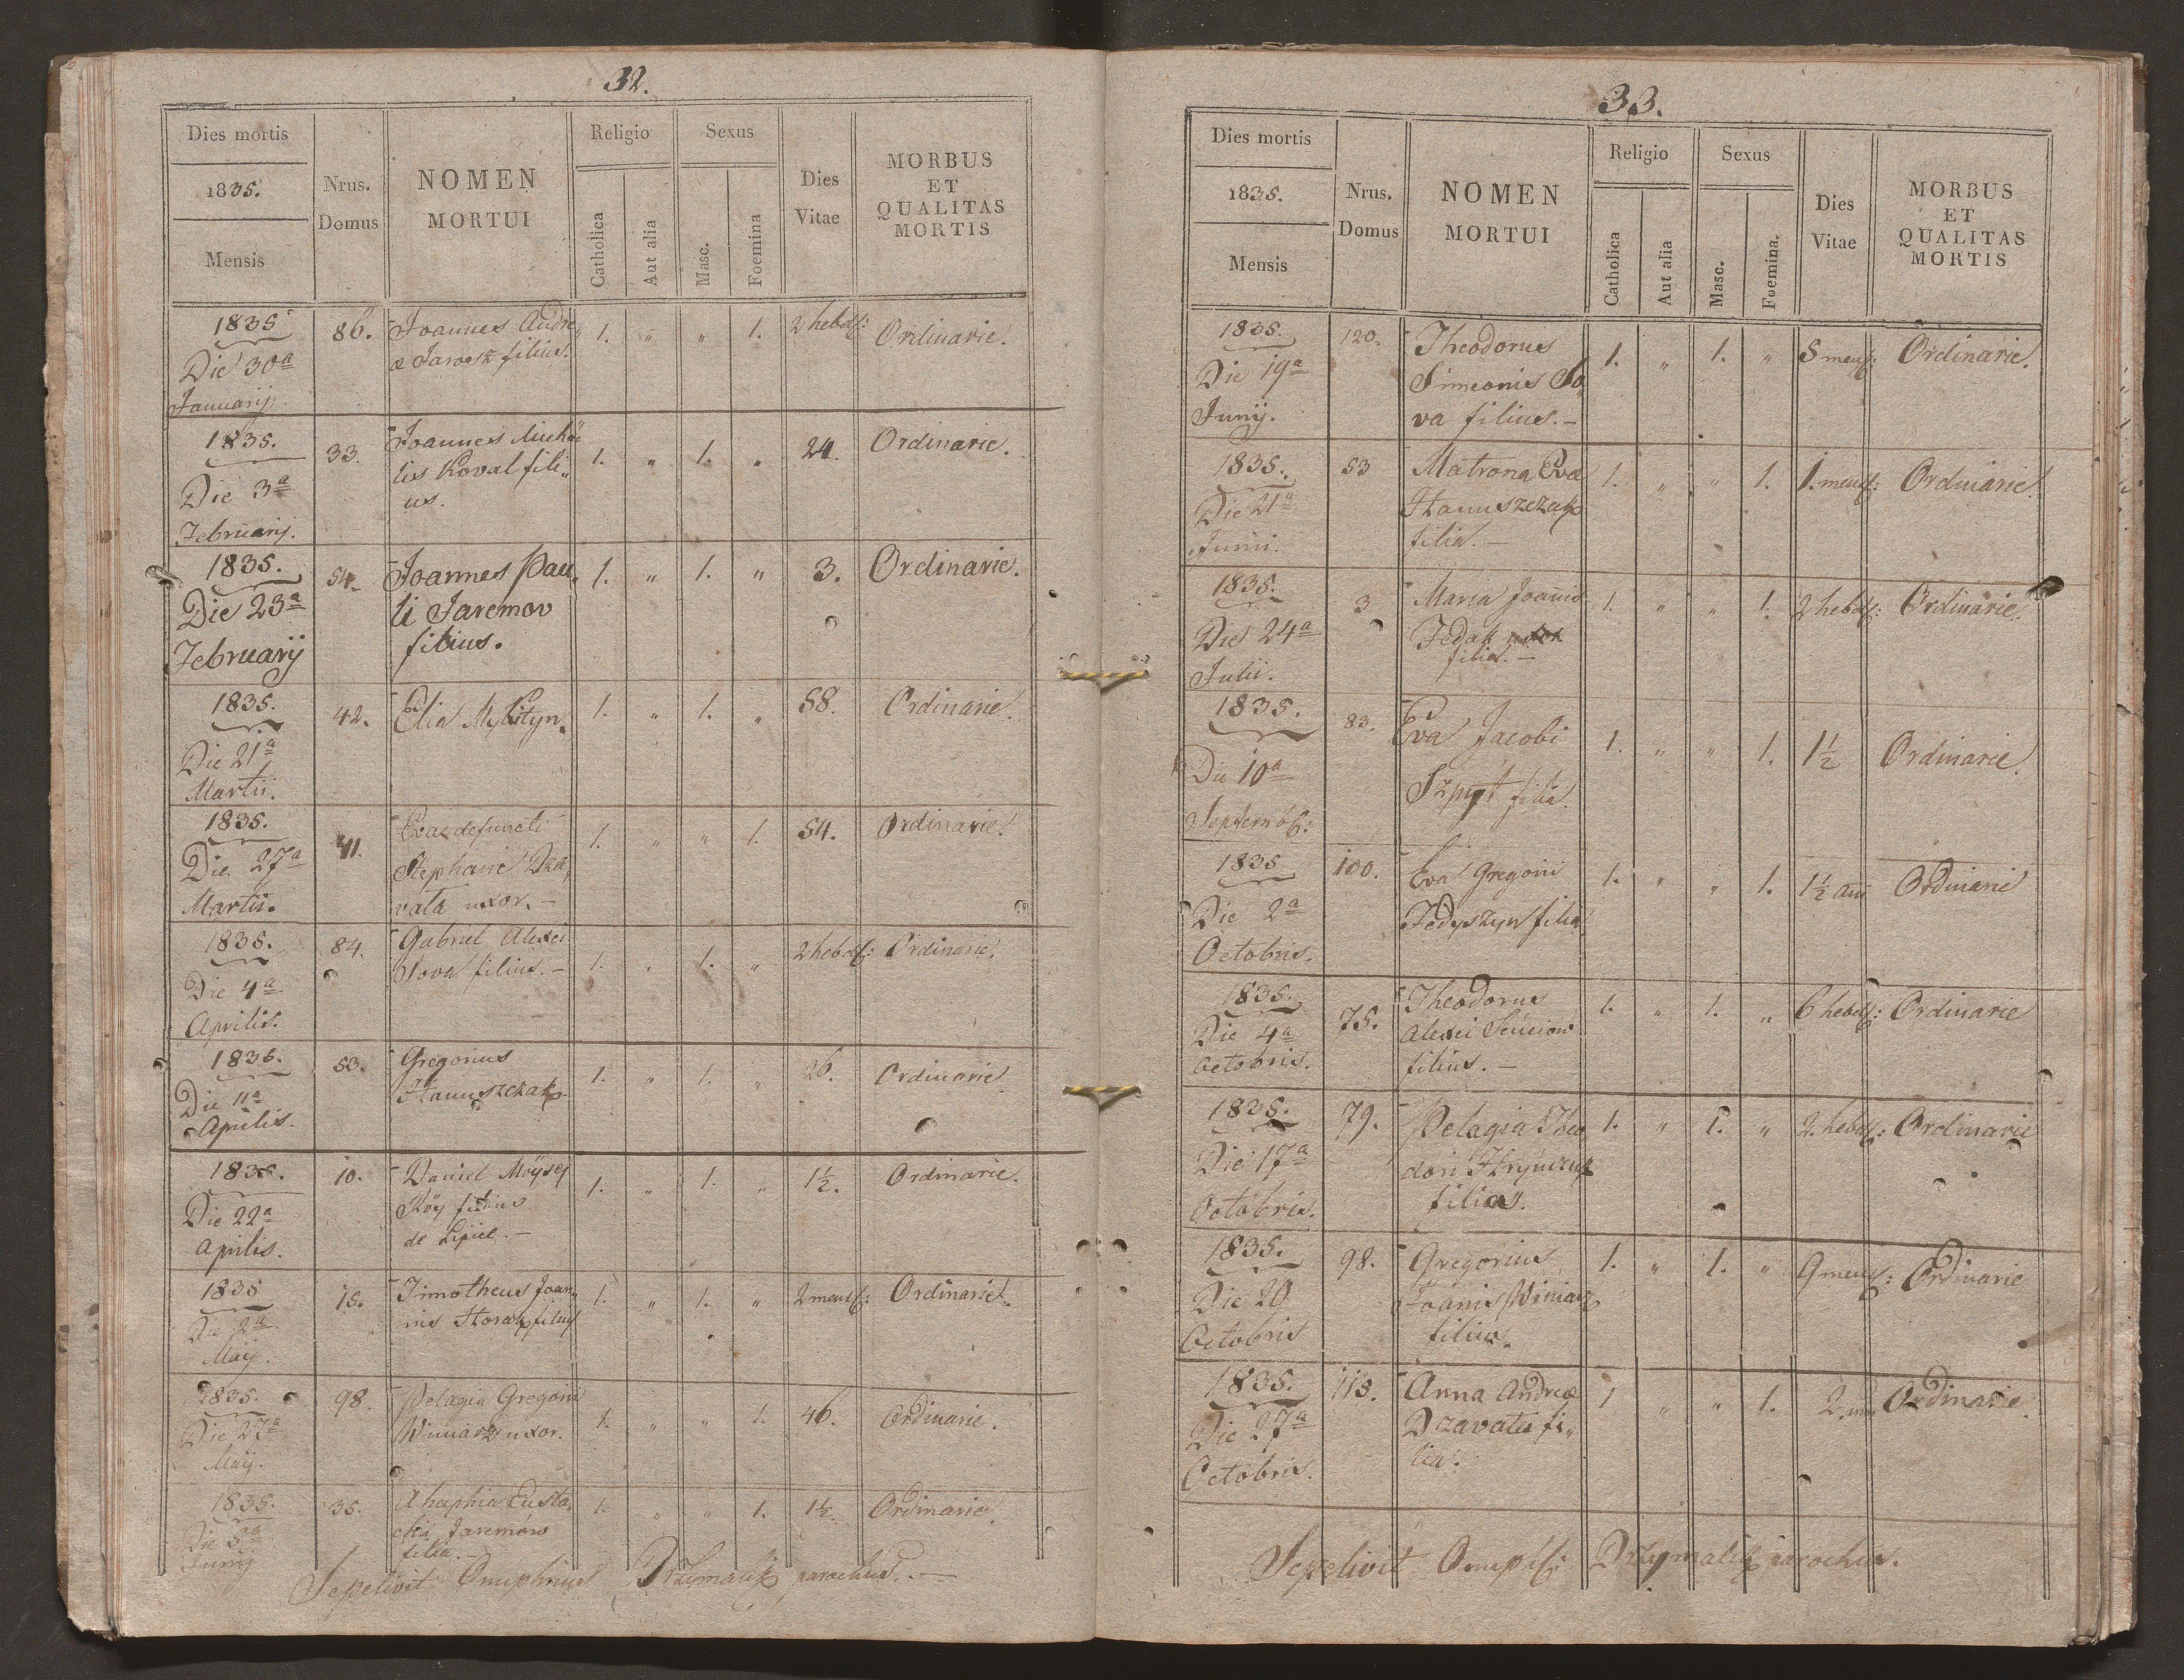 32.
Dies mortis
1835.
Mensis
Nrus.
Domus
NOMEN
MORTUI
Religio
Catholica
Aut alia
Sexus
Masc.
Foemina
Dies
Vitae
MORBUS
ET
QUALITAS
MORTIS
1835
Die 30a
Januarij.
86.
Joannes Andre
æ Jarosz filius.
1. " " 1.
2 hebd:
Ordinarie.
1835.
Die 3a
Februarij.
33.
Joannes Michae
lis Koval fili„
us.
1. " 1. "
24.
Ordinarie.
1835.
Die 23a
Februarij
54.
Joannes Pau„
li Jaremov
filius.
1. " 1. "
3.
Ordinarie.
1835.
Die 21a
Martii.
42.
Elia Mykityn.
1. " 1. "
58.
Ordinarie.
1835.
Die 27a
Martii.
41.
Eva defuncti
Stephani Dza„
vala uxor. –
1. " " 1.
54.
Ordinarie.
1835.
Die 4a
Aprilis.
84.
Gabriel Alexei
Sova filius. –
1. " 1. "
2 hebd:
Ordinarie.
1835.
Die 11a
Aprilis.
53.
Gregorius
Hanuszczak
1. " 1. "
26.
Ordinarie
1835.
Die 22a
Aprilis.
10.
Daniel Moysey
filius
de Lipie. –
1. " 1. "
1½.
Ordinarie.
1835
Die 2a
Maij.
15.
Timotheus Joan„
nis Horak filius
1. " 1. "
2 mens:
Ordinarie.
1835.
Die 27a
Maij.
98.
Pelagia Gregorii
Winiarz uxor.
1. " " 1.
46.
Ordinarie.
1835.
Die 5a
Junij
35.
Ahaphia Eusta„
chi Jaremów
filia. –
1. " " 1.
1½.
Ordinarie.
Sepelivit Onuphrius Drzymalik parochus. –
33.
Dies mortis
1835.
Mensis
Nrus.
Domus
NOMEN
MORTUI
Religio
Catholica
Aut alia
Sexus
Masc.
Foemina.
Dies
Vitae
MORBUS
ET
QUALITAS
MORTIS
1835.
Die 19a
Junij.
120.
Theodorus
Simeonis So„
va filius. –
1. " 1. "
5 mens:
Ordinarie.
1835.
Die 21a
Junii.
53
Matrona Evæ
Hanuszczak
filia. –
1. " " 1.
1. mens:
Ordinarie.
1835.
Die 24a
Julii.
3
Maria Joannis
Fedak
filia. –
1. " " 1.
2 hebd:
Ordinarie.
1835.
Die 10a
Septemb:
83.
Eva Jacobi
Szpyt filia.
1. " " 1.
1½
Ordinarie.
1835
Die 2a
Octobris.
100.
Eva Gregorii
Fedyszyn filia
1. " " 1.
1½ an̄
Ordinarie
1835.
Die 4a
Octobris.
75.
Theodorus
Alexei
filius. –
1. " 1. "
6 hebd:
Ordinarie
1835.
Die 17a
Octobris.
79.
Pelagia Theo
dori
filia.
1. " 1. "
2. hebd:
Ordinarie
1835.
Die 20
Octobris
98.
Gregorius
Joanis Winiarz
filius.
1. " 1. "
9 mens:
Ordinarie
1835.
Die 27a
Octobris.
115.
Anna Andreæ
Dzavala fi„
lia.
1 " " 1.
2
Ordinarie.
Sepelivit Onuph: Drzymalik parochus.